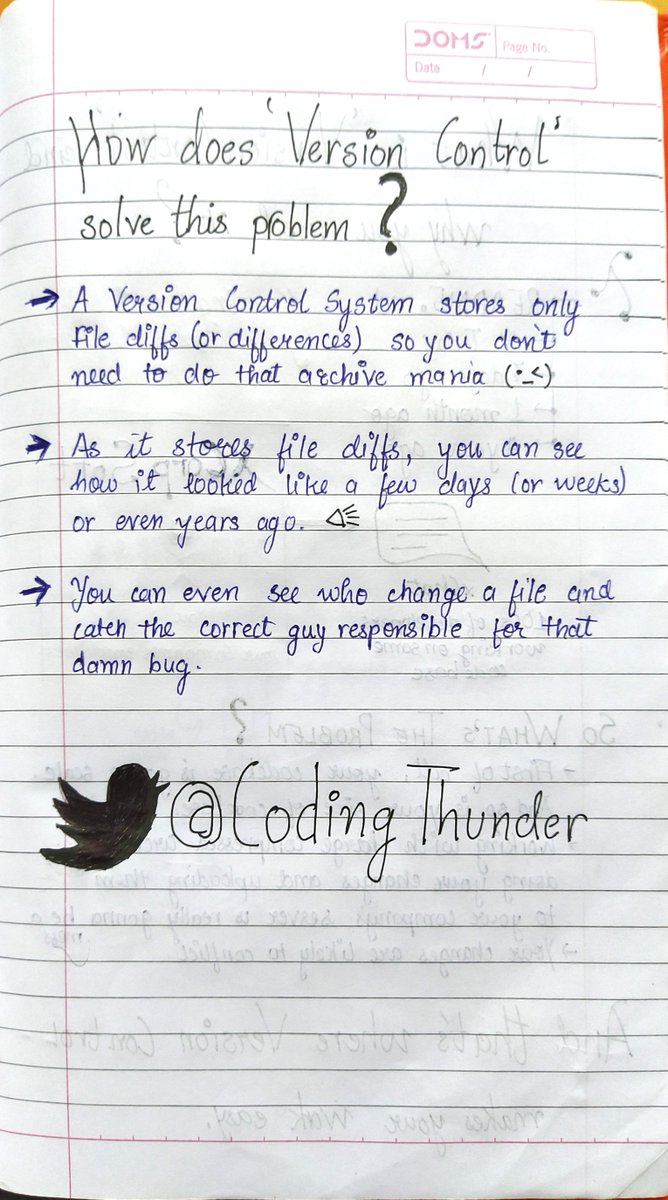 DOMS
Page No.
Date / /
How does 'Version Control'
solve this problem ?
→ A Version Control System stores only
file diffs (or differences) so you don't
need to do that archive mania (•_<)
→ As it stores file diffs, you can see
how it looked like a few days (or weeks)
or even years ago.
→ You can even see who change a file and
catch the correct guy responsible for that
damn bug.
@Coding Thunder